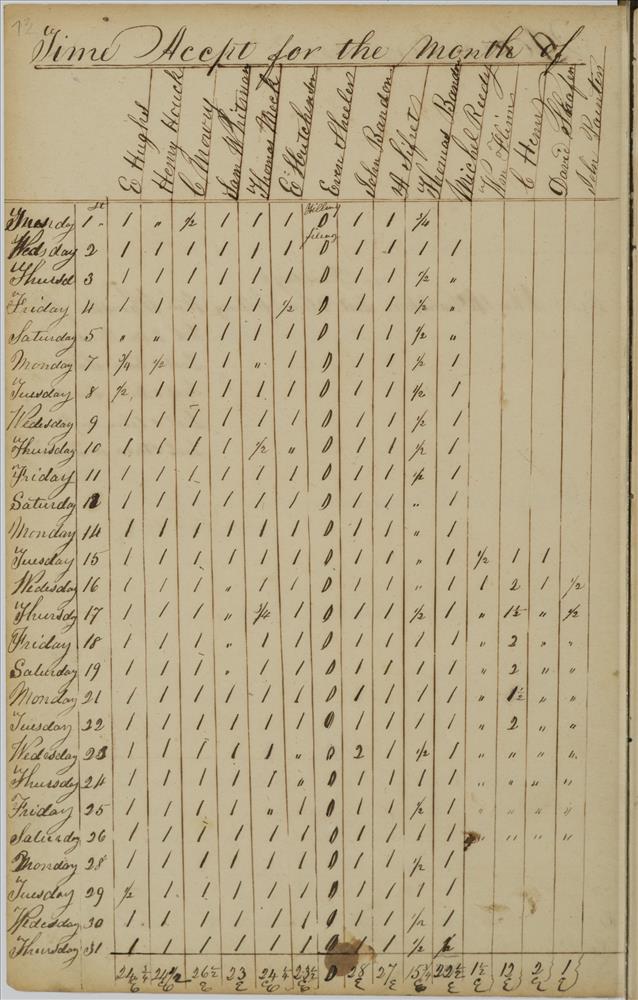 Time Accpt for the Month of
E Hughs Henry Houck C Mowry Sam Whitman Thomas Meck E Hutchinson Even Wheeler John Bandon A Sifret Thomas Bandon Michel Reedy Wm Flemi C Henry David John
Tuesday 1 st 1 " 1/2 1 1 1 0 1 1 3/4
Wedsday 2 1 1 1 1 1 1 0 1 1 1 1
Thursd 3 1 1 1 1 1 1 0 1 1 1/2 "
Friday 4 1 1 1 1 1 1/2 0 1 1 1/2 "
Saturday 5 " " 1 1 1 1 0 1 1 1/2 "
Monday 7 3/4 1/2 1 1 " 1 0 1 1 1/2 1
Tuesday 8 1/2 1 1 1 1 1 0 1 1 1/2 1
Wedesday 9 1 1 1 1 1 1 0 1 1 1/2 1
Thursday 10 1 1 1 1 1/2 " 0 1 1 1/2 1
Friday 11 1 1 1 1 1 1 0 1 1 1/2 1
Saturday 12 1 1 1 1 1 1 0 1 1 " 1
Monday 14 1 1 1 1 1 1 0 1 1 " 1
Tuesday 15 1 1 1 1 1 1 0 1 1 " 1 1/2 1 1
Wedesday 16 1 1 1 " 1 1 0 1 1 " 1 1 2 1 1/2
Thursdy 17 1 1 1 " 3/4 1 0 1 1 1/2 1 " 1 1/2 " 1/2
Friday 18 1 1 1 " 1 1 0 1 1 1 1 " 2 " "
Saturday 19 1 1 1 " 1 1 0 1 1 1 1 " 2 " "
Monday 21 1 1 1 1 1 1 0 1 1 1 1 " 1 1/2 " "
Tuesday 22 1 1 1 1 1 1 0 1 1 1 1 " 2 " "
Wedesday 23 1 1 1 1 1 " 0 2 1 1/2 1 " " " "
Thursday 24 1 1 1 1 1 " 0 1 1 1 1 " " " "
Friday 25 1 1 1 1 " 1 0 1 1 1/2 1 " " " "
Saturdy 26 1 1 1 1 1 1 0 1 1 1 1 " " " "
Monday 28 1 1 1 1 1 1 0 1 1 1/2 1
Tuesday 29 1/2 1 1 1 1 1 0 1 1 1 1
Wedesday 30 1 1 1 1 1 1 0 1 1 1/2 1
Thursday 31 1 1 1 1 1 1 1 1 1/2 1/2
24 3/4 24 1/2 26 1/2 23 24 1/4 23 1/2 0 28 27 15 1/4 22 1/2 1 1/2 12 2 1